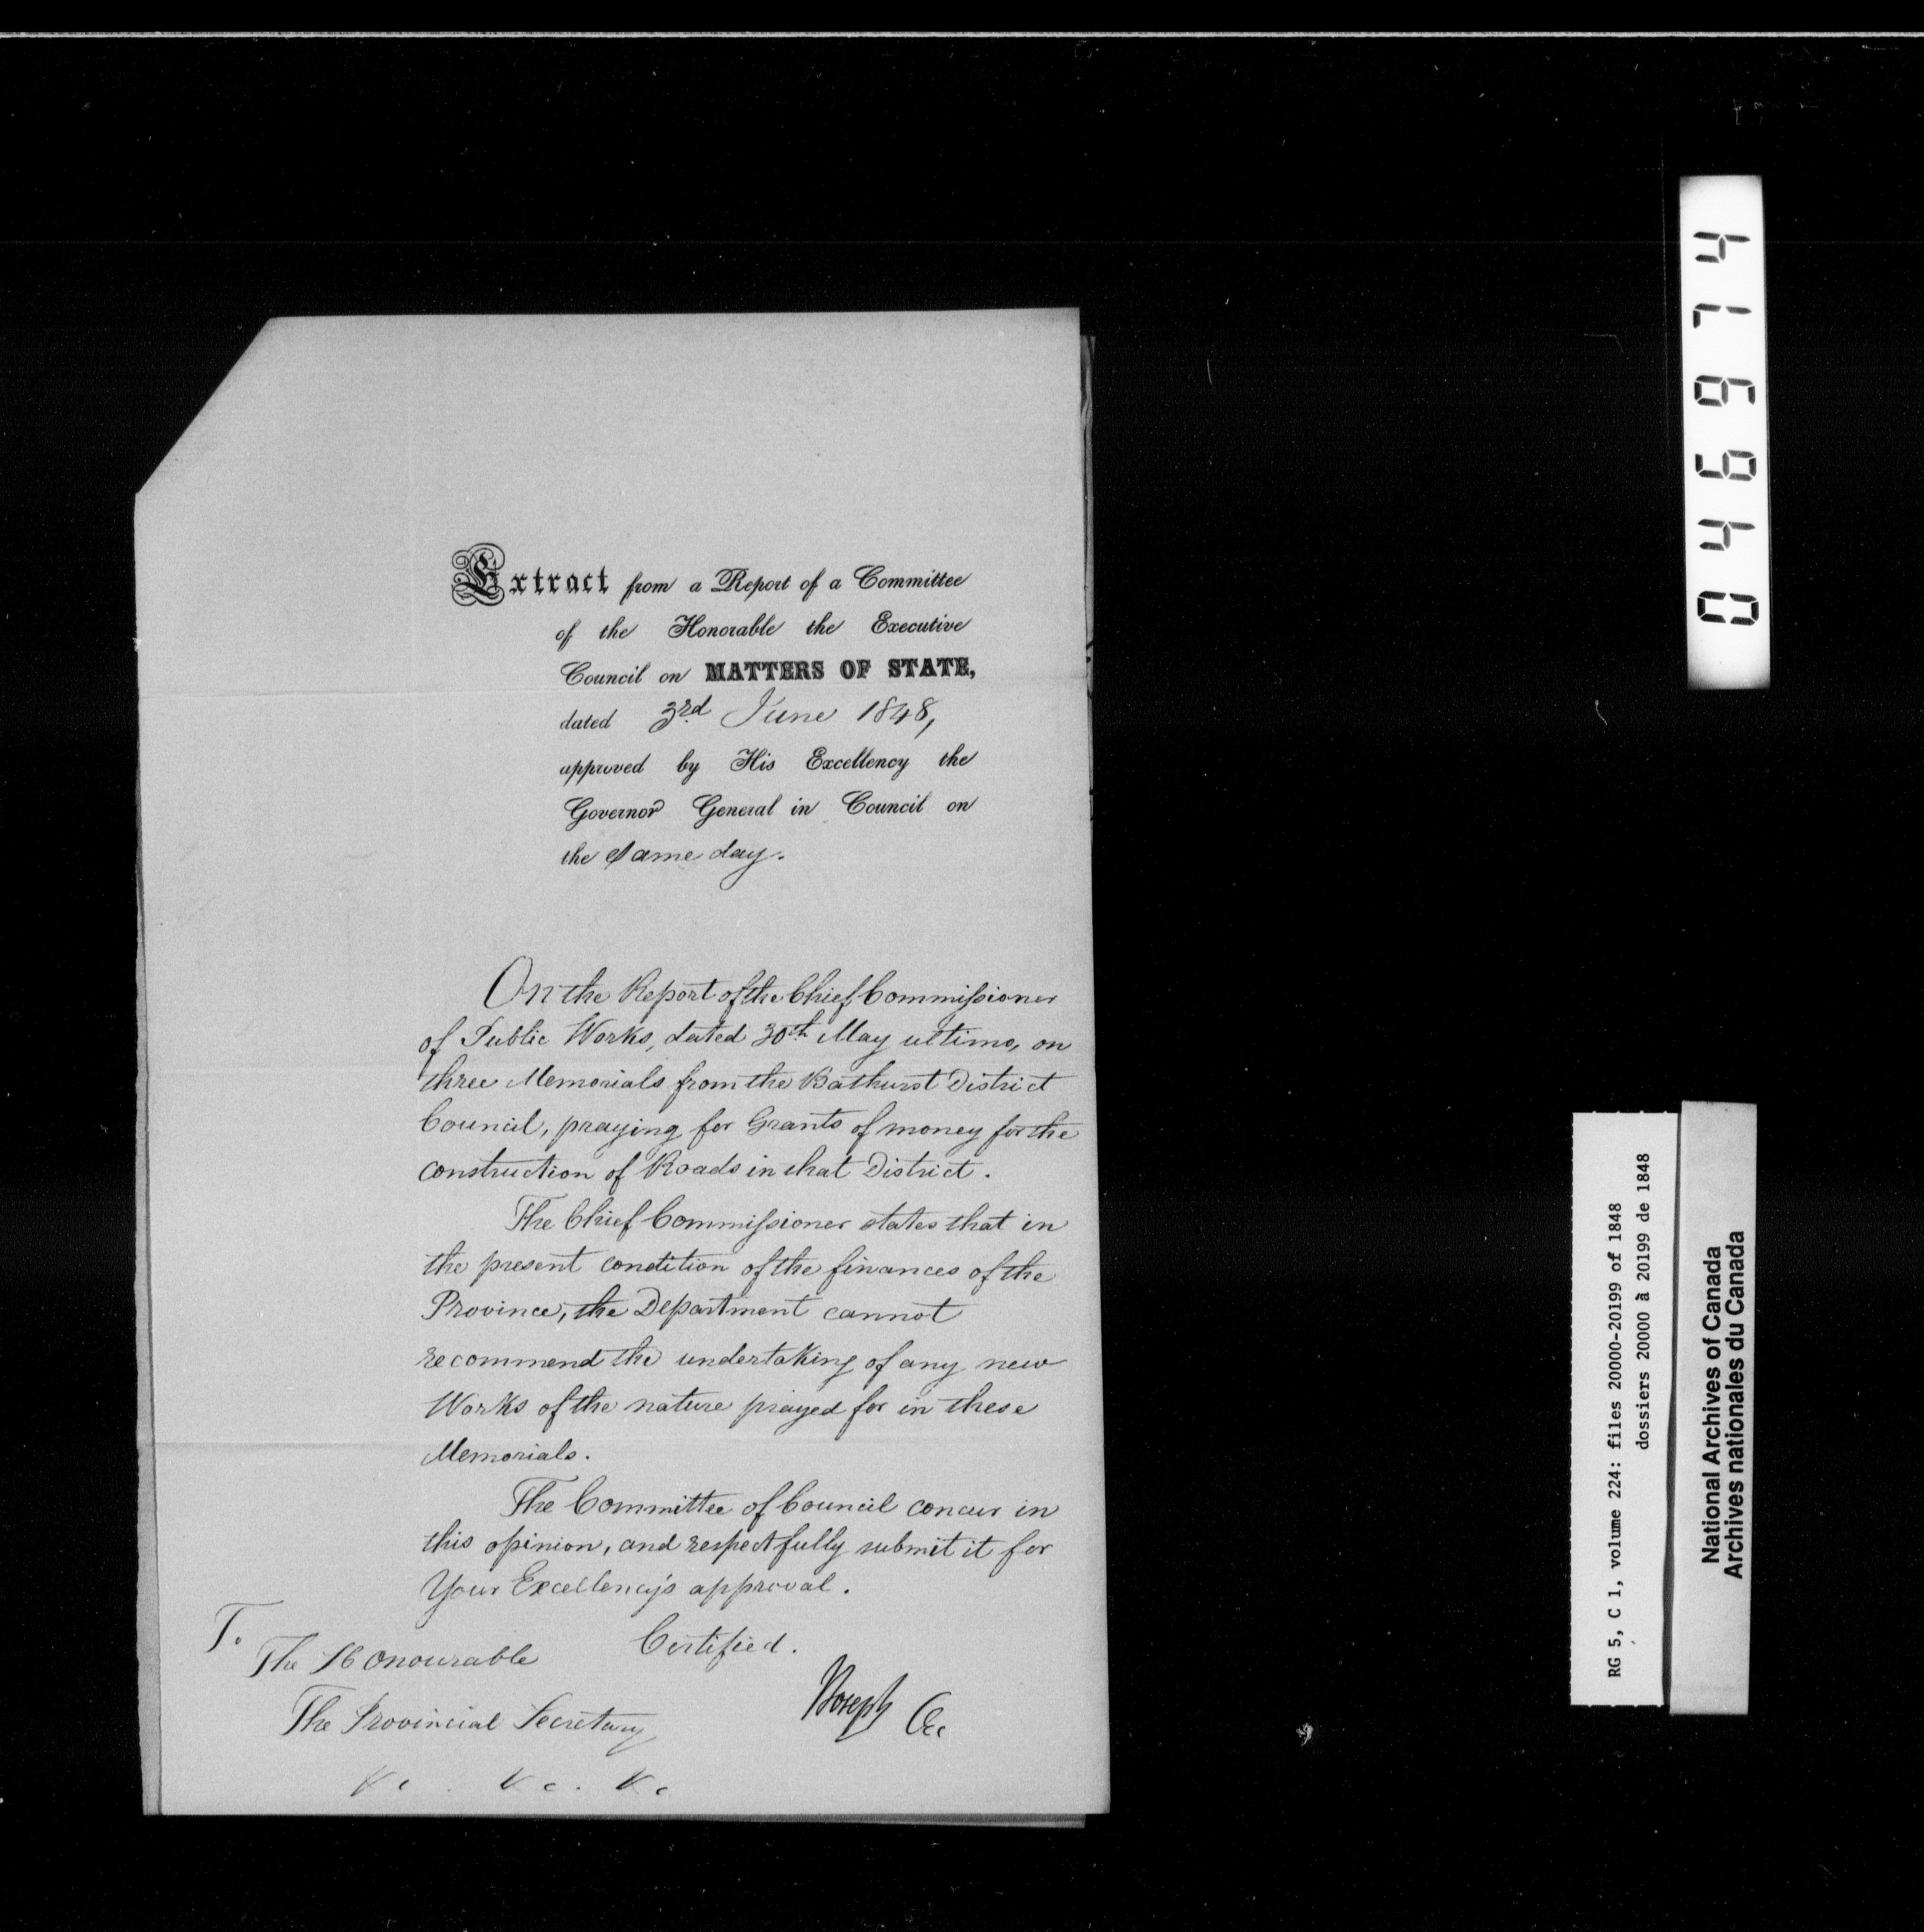 Extract from a Report of a Committee
of the Honorable the Executive
Council on MATTERS OF STATE,
dated 3rd June 1848,
approved by His Excellency the
Governor General in Council on
the Same day.
On the Report of the Chief Commissioner
of Public Works, dated 30th May ultimo, on
three Memorials from the Bathurst District
Council, praying for Grants of money for the
construction of Roads in that District.
The Chief Commissioner states that in
the present condition of the finances of the
Province, the Department cannot
recommend the undertaking of any new
Works of the nature prayed for in these
Memorials.
The Committee of Council concur in
this opinion, and respectfully submit it for
Your Excellency's approval.
Certified.
Joseph
To
The Honourable
The Provincial Secretary
&c. &c. &c
046974
RG 5, C 1, volume 224: files 20000-20199 of 1848
dossiers 20000 à 20199 de 1848
National Archives of Canada
Archives nationales du Canada